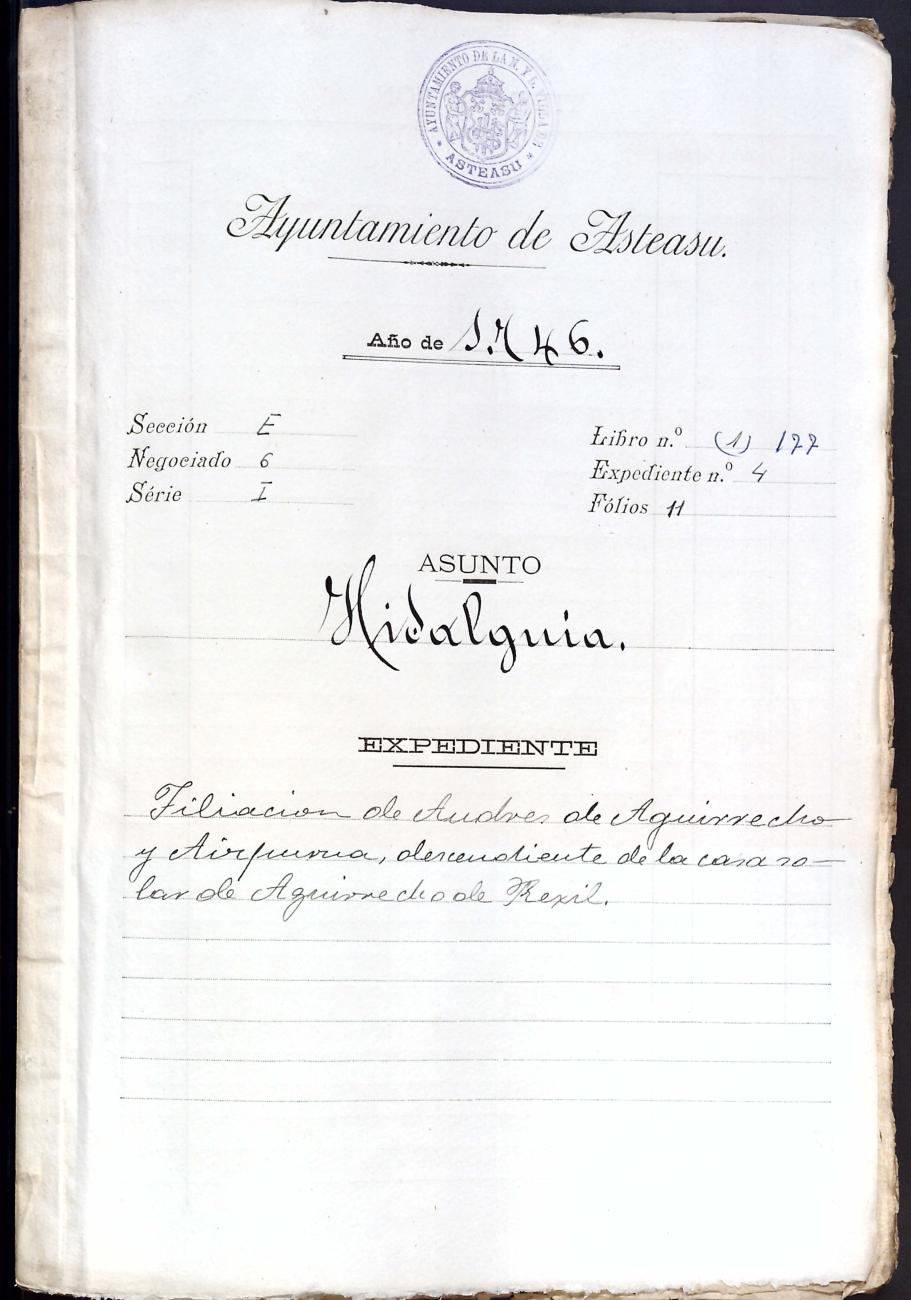 AYUNTAMIENTO DE LA N. Y L. VILLA DE
* ASTEASU *
Ayuntamiento de Asteasu.
Año de 1.746.
Sección E
Negociado 6
Série I
Libro n.º (1) 177
Expediente n.º 4
Fólios 11
ASUNTO
Hidalguia.
EXPEDIENTE
Filiacion de Andres de Aguirrecho
y Airpurua, descendiente de la casa so-
lar de Aguirrecho de Rexil.